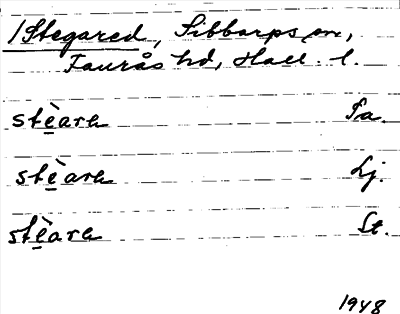 /Stegared, Sibbarps sn,
Faurås hd, Hall. l.
stè̱are Fa.
stè̱are Lj.
stè̱are St.
1948